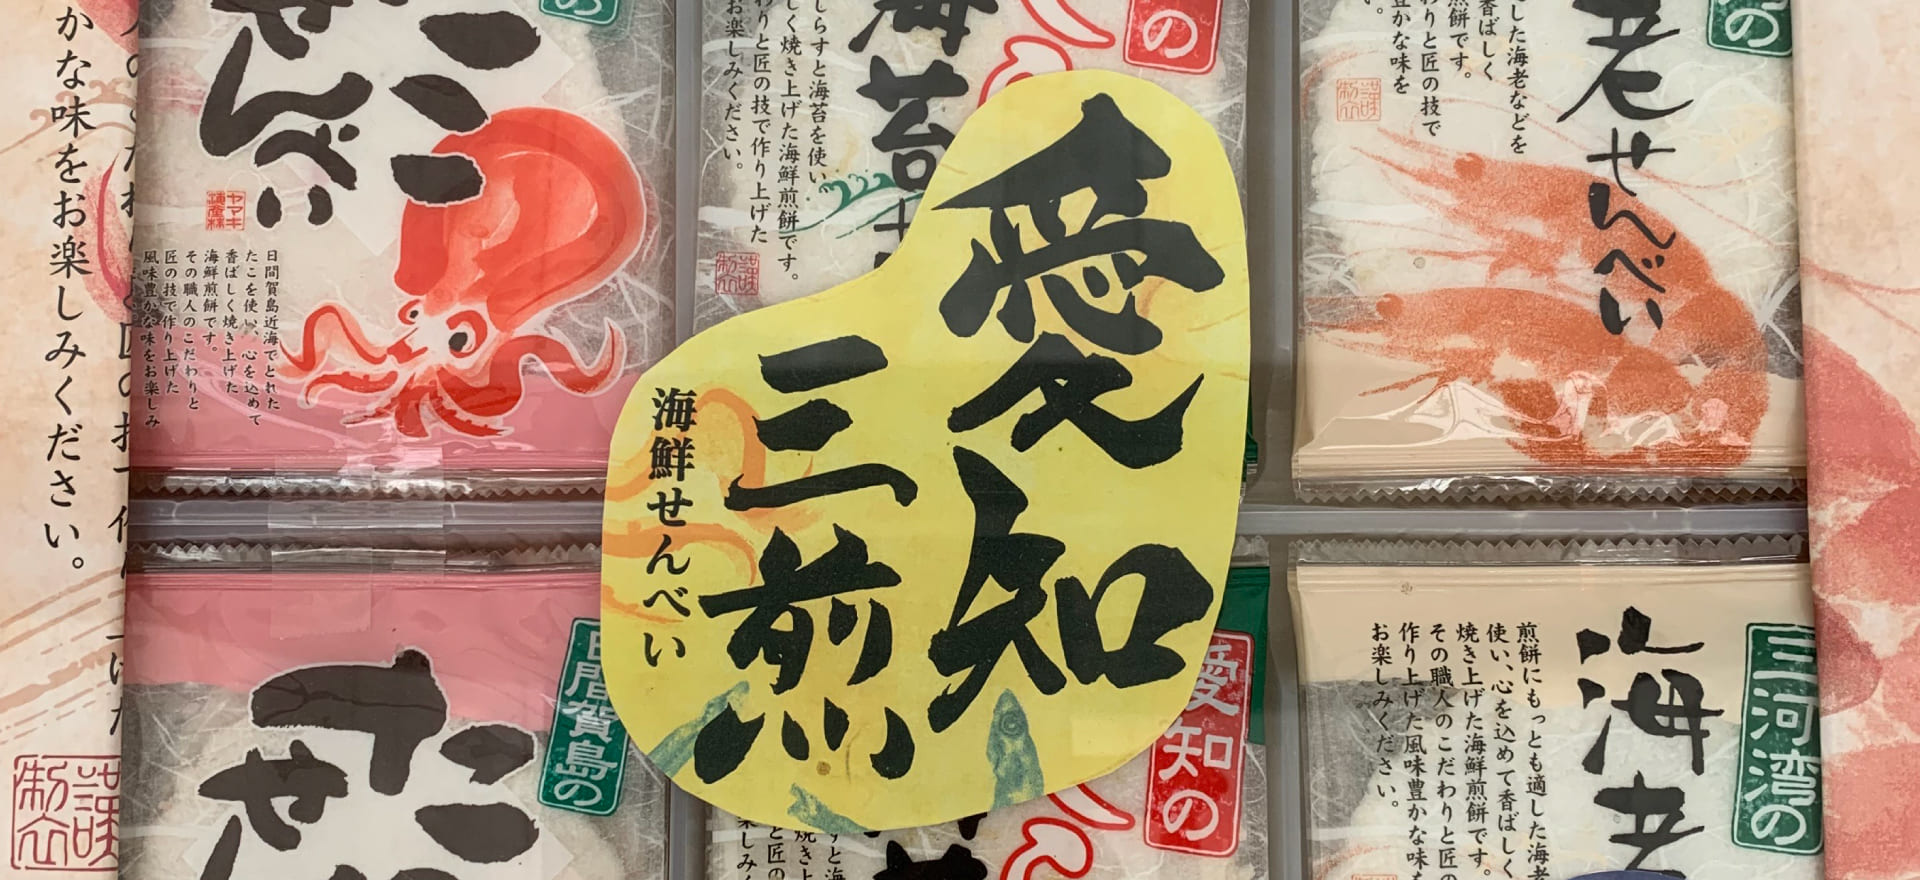 愛知
三煎
海鮮せんべい
かな味をお楽しみください。
せんべい
日間賀島近海でとれた
たこを使い、心を込めて
香ばしく焼き上げた
海鮮煎餅です。
その職人のこだわりと
匠の技で作り上げた
風味豊かな味をお楽しみ
ヤマキ
の
海苔
しらすと海苔を使い、
しく焼き上げた海鮮煎餅です。
わりと匠の技で作り上げた
お楽しみください。
の
老せんべい
した海老などを
香ばしく
煎餅です。
わりと匠の技で
豊かな味を
日間賀島の
たこ
せ
愛知の
三河湾の
海老
煎餅にもっとも適した海老
使い、心を込めて香ばしく
焼き上げた海鮮煎餅です。
その職人のこだわりと匠の
作り上げた風味豊かな味を
お楽しみください。